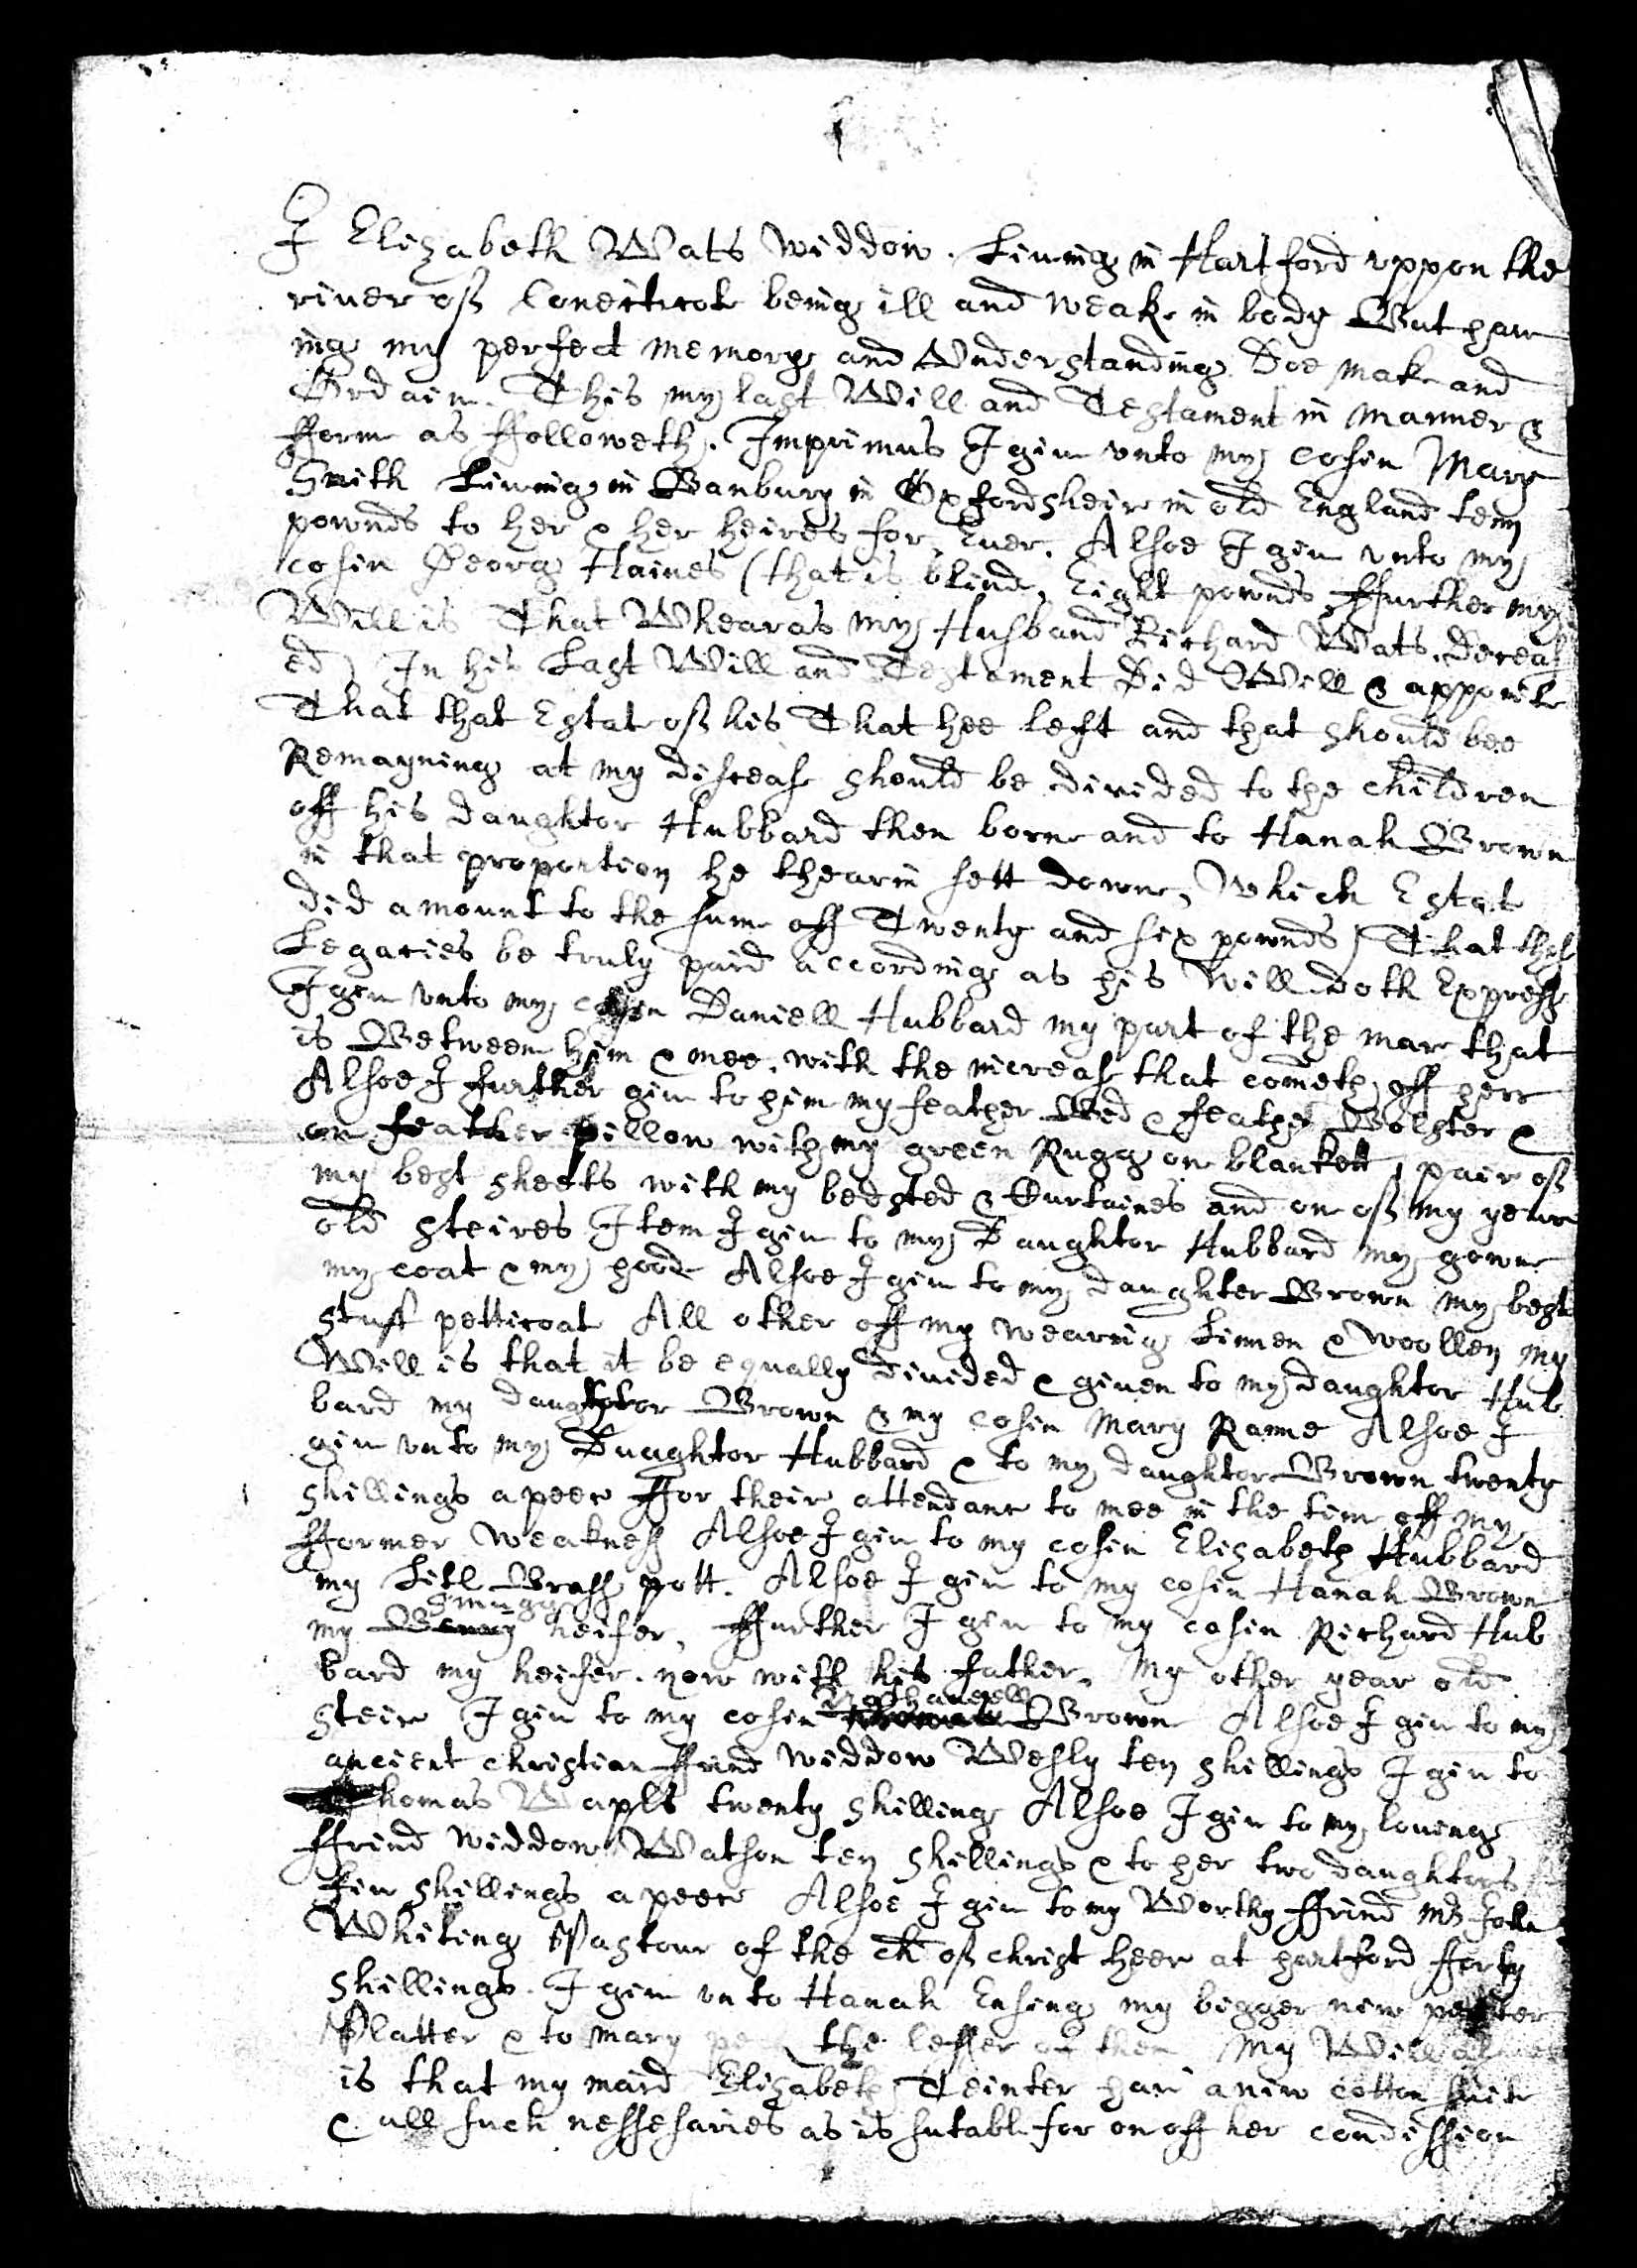 I Elizabeth Wats Widdow. Liuing in Hartford vppon the
riuer off Conecticot being ill and weake in body But haue
ing my perfect memory and Vnderstanding Doe make and
Ordaine This my last Will and Testament in manner &
fforme as ffolloweth. Imprimus I giue vnto my cosin Mary
Smith Liuing in Banbury in Oxfordsheir in old England tenn
pownds to her & her heires for Euer. Alsoe I giue vnto my
cosin Georg Haines (that is blind, Eight pownds ffurther my
Will is That Whearas my Husband Richard Wats. deceas
ed) In his Last Will and Testament Did Will & appoint
That that Estat off his That hee left and that should bee
Remayning at my diseas should be diuided to the children
off his daughtor Hubbard then borne and to Hanah Brown
in that proportion he thearin sett downe, Which Estat
did amount to the sume off Twenty and six pownds) That thes
Legacies be truly paid according as his Will doth Express
I giue vnto my cosen Daniell Hubbard my part of the mare that
is Between him & mee. with the increas that cometh off herr
Alsoe I further giue to him my feather Bed & feather Bolster &
on feather pillow with my green Rugg on blankett 1 pair off
my best sheets with my bedsted & Curtaines and on off my year
old steires Item I giue to my Daughtor Hubbard my gowne
my coat & my hood Alsoe I giue to my daughter Brown my best
stuff petticoat All other off my wearing Linnen & woollen my
Will is that it be equally diuided & giuen to my daughtor Hub
bard my daughtor Brown & my cosin Mary Ranne Alsoe I
giue vnto my Daughtor Hubbard & to my daughtor Brown twenty
shillings a peece ffor their attendanc to mee in the time off my
fformer weakness Alsoe I giue to my cosin Elizabeth Hubbard
my Litl Brass pott. Alsoe I giue to my cosin Hanah Brown
my heifer, ffurther I giue to my cosin Richard Hub
bard my heifer. now with his father. My other year old
steire I giue to my cosin Nathaniell Brown Alsoe I giue to my
ancient christian ffrind widdow Wesly ten shillings I giue to
Thomas Waples twenty shillings Alsoe I giue to my louing
ffrind widdow Watson ten shillings & to her two daughtors
fiue shillings a peece Alsoe I giue to my Worthy ffrind Mr John
Whiting Pastour of the Ch off christ heer at hartford fforty
shillings. I giue vnto Hanah Ensing my bigger new pewter
Platter & to mary the lesser of them My Will
is that my maid Elizabeth Teinter haue a niw cotton suite
& all such nessesaries as is sutabl for on off her condission